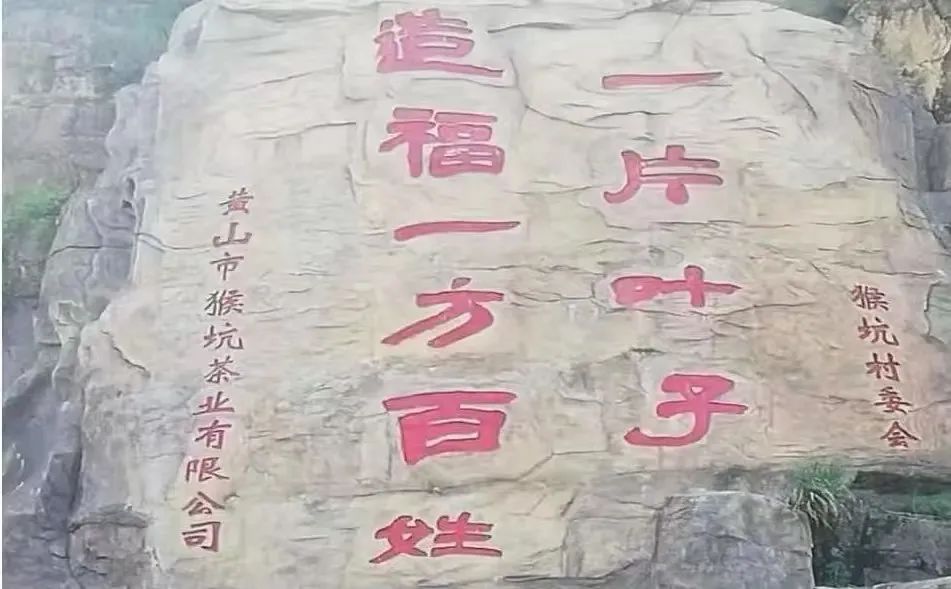 猴坑村委会
一片叶子
造福一方百姓
黄山市猴坑茶业有限公司